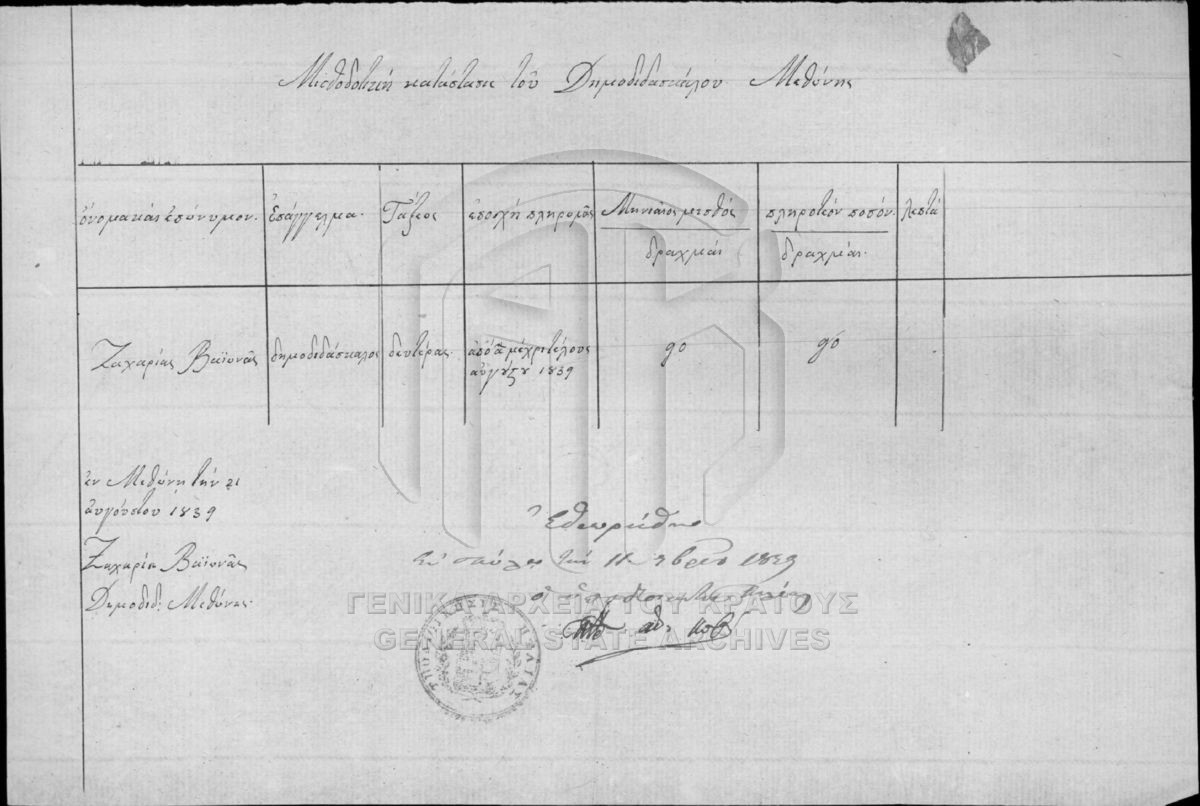 Μισθοδοτική κατάστασις τοῦ Δημοδιδασκάλου Μεθώνης
ὄνομα καὶ ἐπώνυμον. ἐπάγγελμα. Τάξεως ἐποχὴ πληρομῆς Μηνιαῖος μισθός πληροτέον ποσόν. λεπτά
δραχμαί δραχμαί.
Ζαχαρίας Βαϊωνᾶς δημοδιδάσκαλος δευτέρας. ἀπὸ α μέχρι τέλους 90 90
αὐγούστου 1839
ἐν Μεθώνῃ τήν 21
αὐγούστου 1839
Ζαχαρίας Βαϊωνᾶς
Δημοδιδ: Μεθώνης.
Ἐθεωρήθη
τήν 11 7βρίου 1839
ὁ
ΓΕΝΙΚΑ ΑΡΧΕΙΑ ΤΟΥ ΚΡΑΤΟΥΣ
GENERAL STATE ARCHIVES